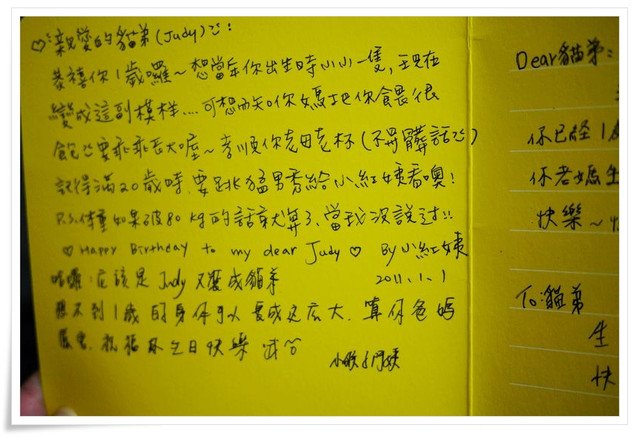 ♡親愛的貓弟(Judy)心:
恭禧你1歲囉~想當年你出生時小小一隻,現在
變成這副模样...可想而知你媽把你餵很
飽心要乖乖長大喔~孝順你老母老杯(不是髒話心)
記得滿20歲時,要跳猛男秀給小紅姨看噢!
P.S.体重如果破80kg的話就算了,當我没說过!!
♡Happy Birthday to my dear Judy♡ By小紅姨
哈囉:应該是Judy又變成貓弟 2011.1.1
想不到1歲的身体可以養成这麼大.算你爸媽
厲害.祝福你生日快樂
Dear貓弟:
你已經1
你老媽生
快樂~
To:貓弟
生
快